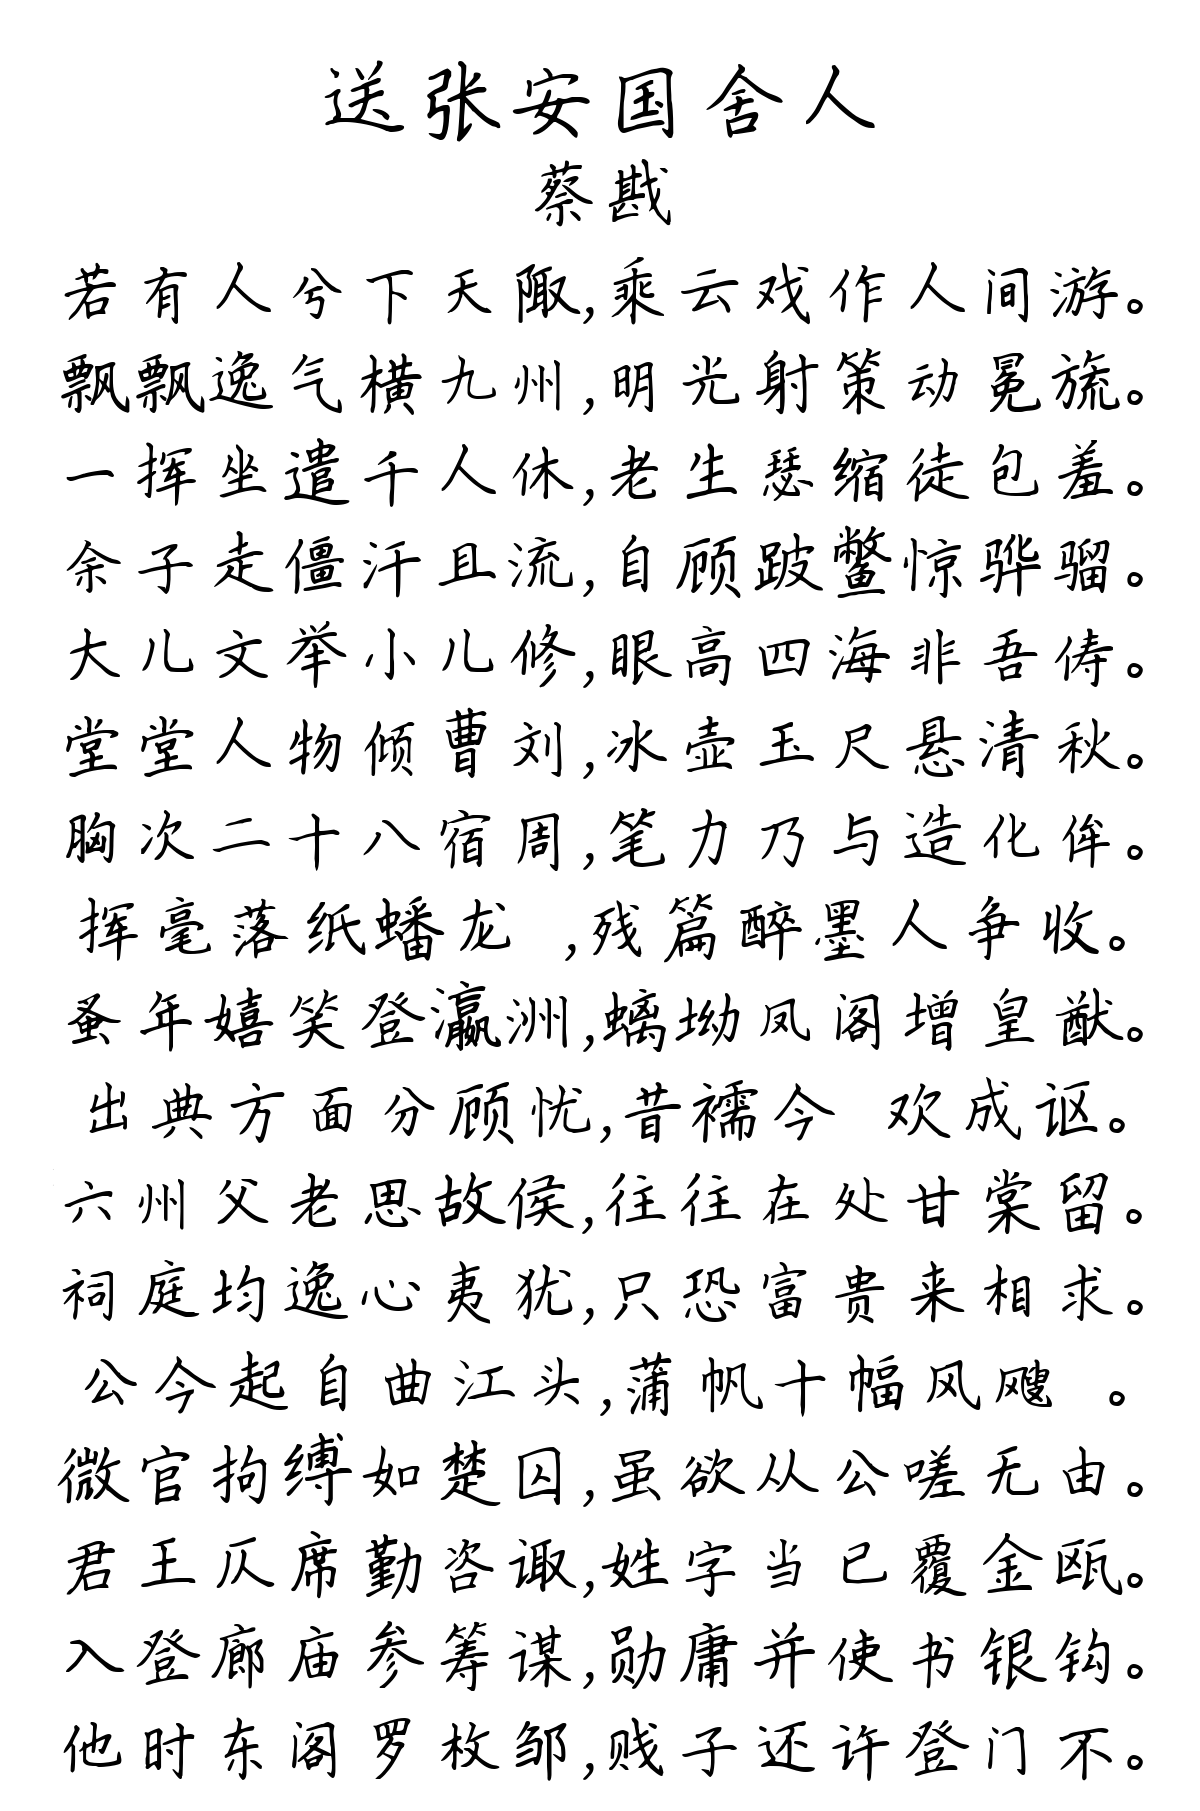 送张安国舍人
蔡戡
若有人兮下天陬,乘云戏作人间游。
飘飘逸气横九州,明光射策动冕旒。
一挥坐遣千人休,老生瑟缩徒包羞。
余子走僵汗且流,自顾跛鳖惊骅骝。
大儿文举小儿修,眼高四海非吾俦。
堂堂人物倾曹刘,冰壶玉尺悬清秋。
胸次二十八宿周,笔力乃与造化侔。
挥毫落纸蟠龙 ,残篇醉墨人争收。
蚤年嬉笑登瀛洲,螭坳凤阁增皇猷。
出典方面分顾忧,昔襦今 欢成讴。
六州父老思故侯,往往在处甘棠留。
祠庭均逸心夷犹,只恐富贵来相求。
公今起自曲江头,蒲帆十幅风飕 。
微官拘缚如楚囚,虽欲从公嗟无由。
君王仄席勤咨诹,姓字当已覆金瓯。
入登廊庙参筹谋,勋庸并使书银钩。
他时东阁罗枚邹,贱子还许登门不。